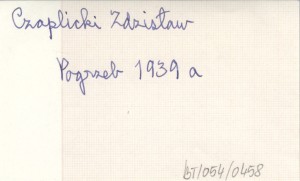 Czaplicki Zdzisław
Pogrzeb 1939 a
BT/054/0458